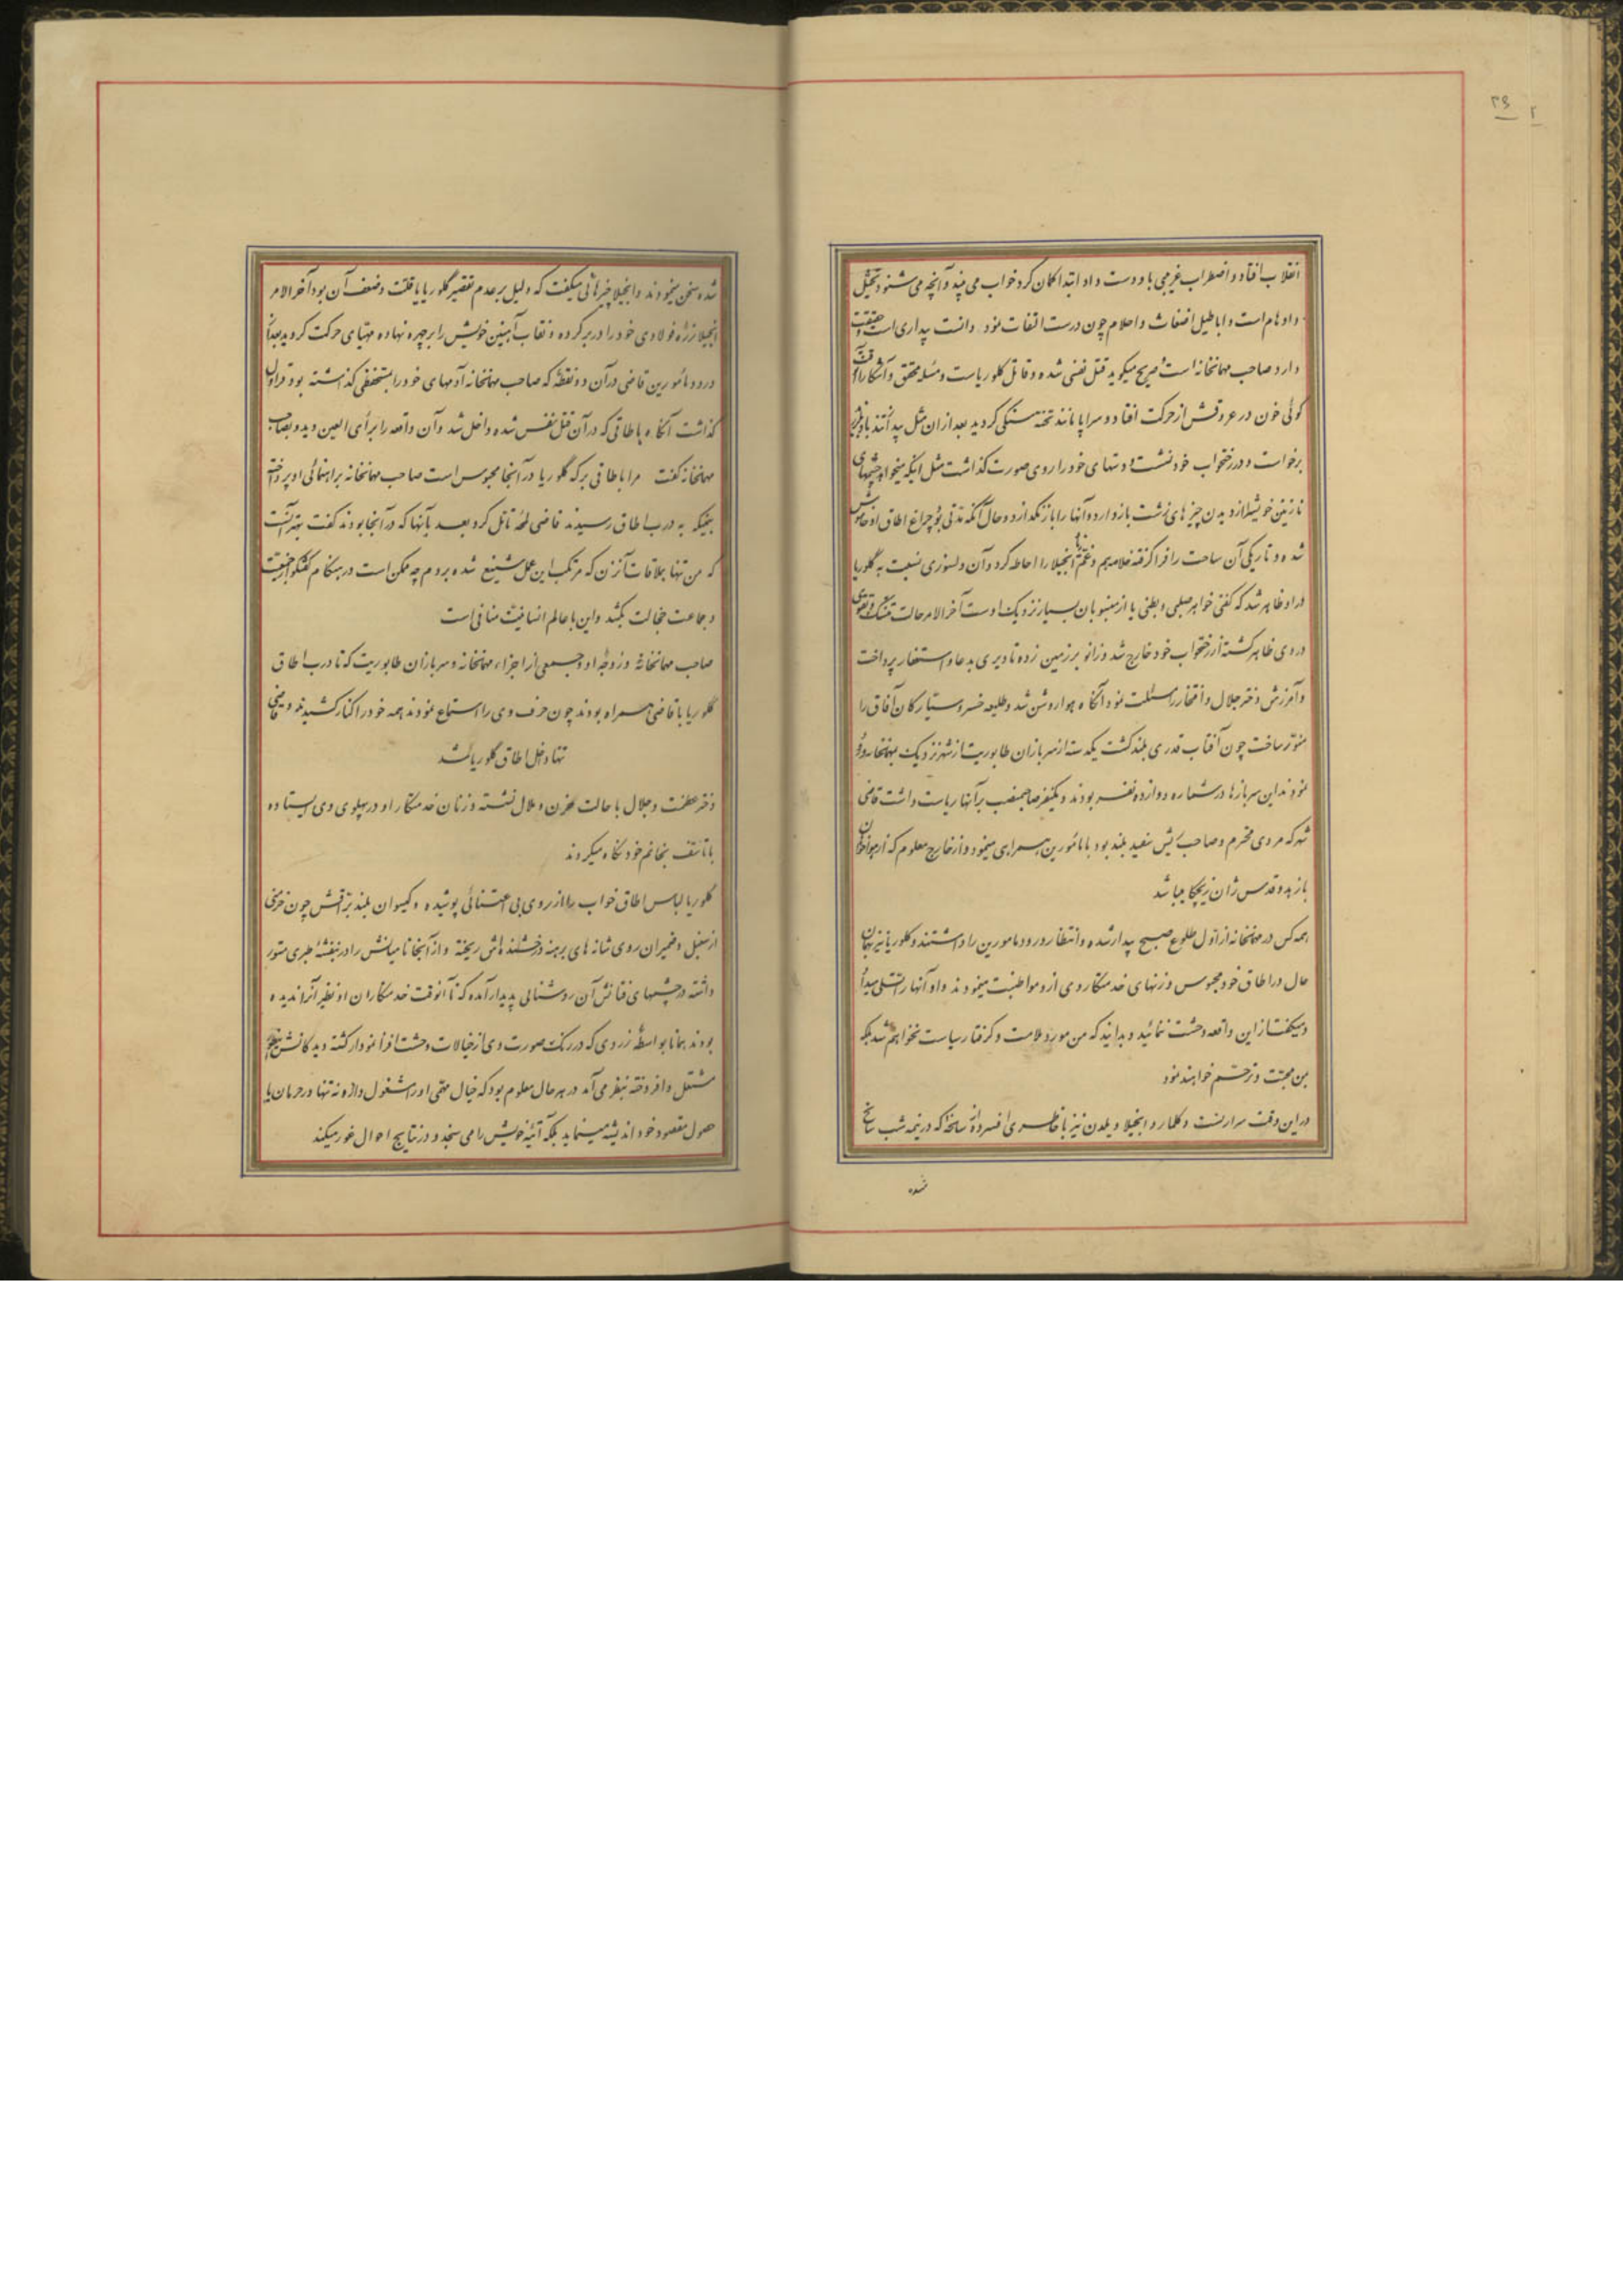 ۳۹
۲
انقلاب افتاد و اضطراب غریبی باو دست داد ابتدا گمان کرد خواب می بیند و آنچه می شنود تخیل
و اوهام است و اباطیل اضغاث و احلام چون درست التفات نمود دانست بیداری است و حقیقت
دارد صاحب مهمانخانه است صریح میگوید قتل نفسی شده و قاتل گلوریاست و مسئله محقق و آشکارا آن وقت
گوئی خون در عروقش از حرکت افتاد و سراپا مانند تخته سنگی گردید بعد از آن مثل بید
برخواست و در رختخواب خود نشست و دستهای خود را روی صورت گذاشت مثل اینکه میخواهد چشمهای
نازنین خویش را از دیدن چیزهای زشت باز دارد و آنها را باز نگذارد و حال آنکه مدتی بود چراغ اطاق او خاموش
شده و تاریکی آن ساحت را فرا گرفته خلاصه هم و غم آنجیلا را احاطه کرد و آن دلسوزی نسبت به گلوریا
در او ظاهر شد که گفتی خواهر صلبی و بطنی یا از منسوبان بسیار نزدیک اوست آخر الامر حالت تنسک و تقوی
در وی ظاهر گشته از رختخواب خود خارج شد و زانو بر زمین زده تا دیری بدعا و استغفار پرداخت
و آمرزش دختر جلال و افتخار را مسئلت نمود آنگاه هوا روشن شد و طلیعه خسرو سیارگان آفاق را
منور ساخت چون آفتاب قدری بلند گشت یکدسته از سربازان طابوریت از شهر نزدیک بمهمانخانه ورود
نمودند این سربازها در شماره دوازده نفر بودند و یکنفر صاحبمنصب بر آنها ریاست داشت قاضی
شهر که مردی محترم و صاحب ریش سفید بلند بود با مأمورین همراهی مینمود و از خارج معلوم که از هواخواهان
با زهد و قدس ژان زیچکا میباشد
همه کس در مهمانخانه از اول طلوع صبح بیدار شده و انتظار ورود مامورین را داشتند و گلوریا نیز بهمان
حال در اطاق خود محبوس و زنهای خدمتکار وی از او مواظبت مینمودند و او آنها را تسلی میداد
و میگفت از این واقعه وحشت ننمائید و بدانید که من مورد ملامت و گرفتار سیاست نخواهم شد بلکه
بمن محبت و ترحم خواهند نمود
در این وقت سرارنست و کلمار و آنجیلا ویلدن نیز با خاطری افسرده از سانحه که در نیمه شب سانح
شده
شده سخن مینمودند و آنجیلا چیزهائی میگفت که دلیل بر عدم تقصیر گلوریا یا قلت و ضعف آن بود آخر الامر
آنجیلا زره فولادی خود را در بر کرده و نقاب آهنین خویش را بر چهره نهاده مهیای حرکت گردید بعد از
ورود مأمورین قاضی در آن دو نقطه که صاحب مهمانخانه آدمهای خود را بمستحفظی گذاشته بود قراول
گذاشت آنگاه باطاقی که در آن قتل نفس شده داخل شد و آن واقعه را برأی العین دید و بصاحب
مهمانخانه گفت مرا باطاقی بر که گلوریا در آنجا محبوس است صاحب مهمانخانه براهنمائی او پرداخته
همینکه به درب اطاق رسیدند قاضی لمحه تأمل کرد بعد بآنها که در آنجا بودند گفت بهتر آنست
که من تنها بملاقات آنزن که مرتکب این عمل شنیع شده بروم چه ممکن است در هنگام گفتگو از جمعیت
و جماعت خجالت بکشد و این با عالم انسانیت منافی است
صاحب مهمانخانه و زوجه او و جمعی از اجزاء مهمانخانه و سربازان طابوریت که تا درب اطاق
گلوریا با قاضی همراه بودند چون حرف وی را استماع نمودند همه خود را کنار کشیدند و قاضی
تنها داخل اطاق گلوریا شد
دختر عظمت و جلال با حالت محزن و ملال نشسته و زنان خدمتکار او در پهلوی وی ایستاده
با تأسف بخانم خود نگاه میکردند
گلوریا لباس اطاق خواب را از روی بی اعتنائی پوشیده و گیسوان بلند براقش چون خرمنی
از سنبل و ضمیران روی شانه های برهنه درخشنده اش ریخته و از آنجا تا میانش را در بنفشه طبری مستور
داشته در چشمهای فتانش آن روشنائی پدیدار آمده که تا آنوقت خدمتکاران او نظیر آنرا ندیده
بودند همانا بواسطه زردی که در رنگ صورت وی از خیالات وحشت افزا نمودار گشته دیدگانش
مشتعل و افروخته بنظر می آمد در هر حال معلوم بود که خیال مهمی او را مشغول دارد نه تنها در حرمان یا
حصول مقصود خود اندیشه مینماید بلکه آتیه خویش را می سنجد و در نتایج احوال غور میکند